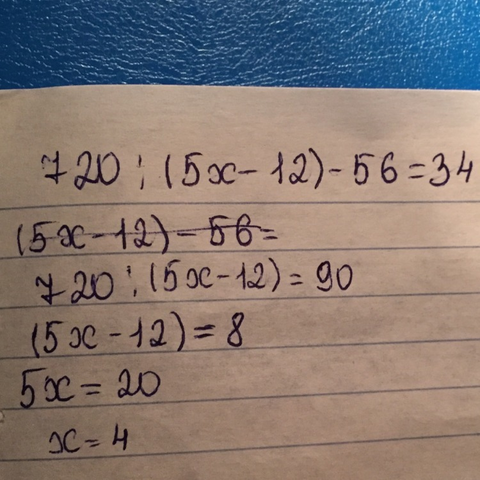 720 : (5x - 12) - 56 = 34
(5x - 12) - 56 =
720 : (5x - 12) = 90
(5x - 12) = 8
5x = 20
x = 4